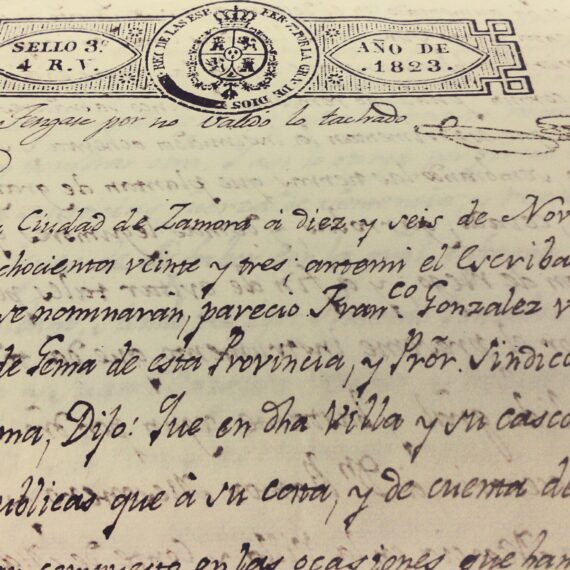 SELLO 3º
4 R. V.
FER. 7. P. LA GRA. DE DIOS REY DE LAS ESP.
AÑO DE
1823.
Tengase por no Valdo lo tachado
Ciudad de Zamora á diez y seis de Nov
chocientos veinte y tres; antemi el Escriba
se nominaran, parecio Fran.co Gonzalez v
de Gema de esta Provincia, y Prōr. Sindico
ma, Dijo: Que en dha Villa y su casco
ublicas que á su costa, y de cuenta de
compuesto en las ocasiones que han